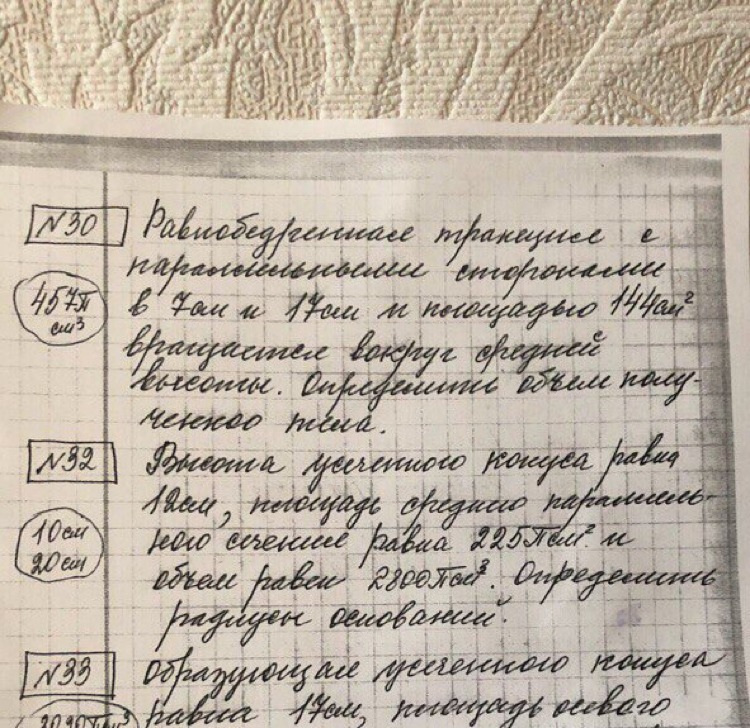 N30
Равнобедренная трапеция с
параллельными сторонами
457π
см³
в 7см и 17см и площадью 144см²
вращается вокруг средней
высоты. Определить объем полу-
ченного тела.
N32
Высота усеченного конуса равна
12см, площадь среднего параллель-
10см
20см
ного сечения равна 225πсм² и
объем равен 2800πсм³. Определить
радиусы оснований.
N33
Образующая усеченного конуса
равна 17см, площадь осевого